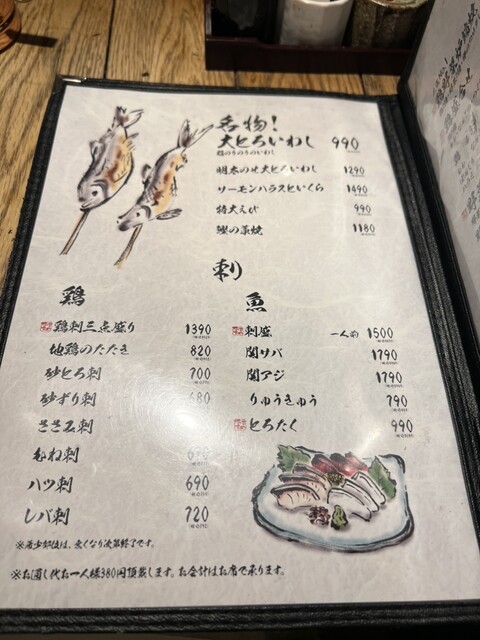 名物!
大とろいわし 990
脂のりのりのいわし
明太のせ大とろいわし 1290
サーモンハラスといくら 1490
特大えび 990
鰹の藁焼 1180
刺
鶏
鶏刺三点盛り 1390
地鶏のたたき 820
砂とろ刺 700
砂ずり刺 680
ささみ刺
むね刺
ハツ刺 690
レバ刺 720
魚
刺盛 一人前 1500
関サバ 1790
関アジ 1790
りゅうきゅう 790
とろたく 990
※希少部位は、無くなり次第終了です。
※お通し代お一人様380円頂戴します。お会計はお席で承ります。